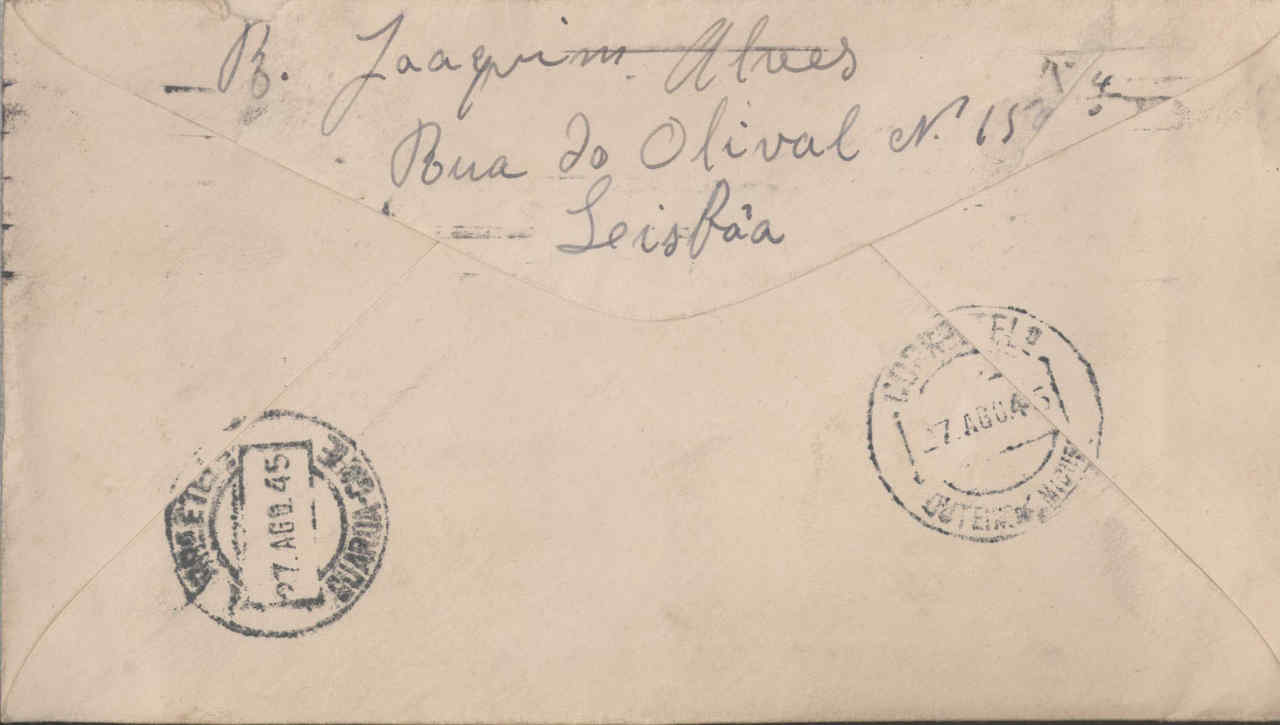 R. Joaquim Alves
Rua do Olival N.º 15 4º
Leisbôa
27.AGO.45
GUARDA
27.AGO.45